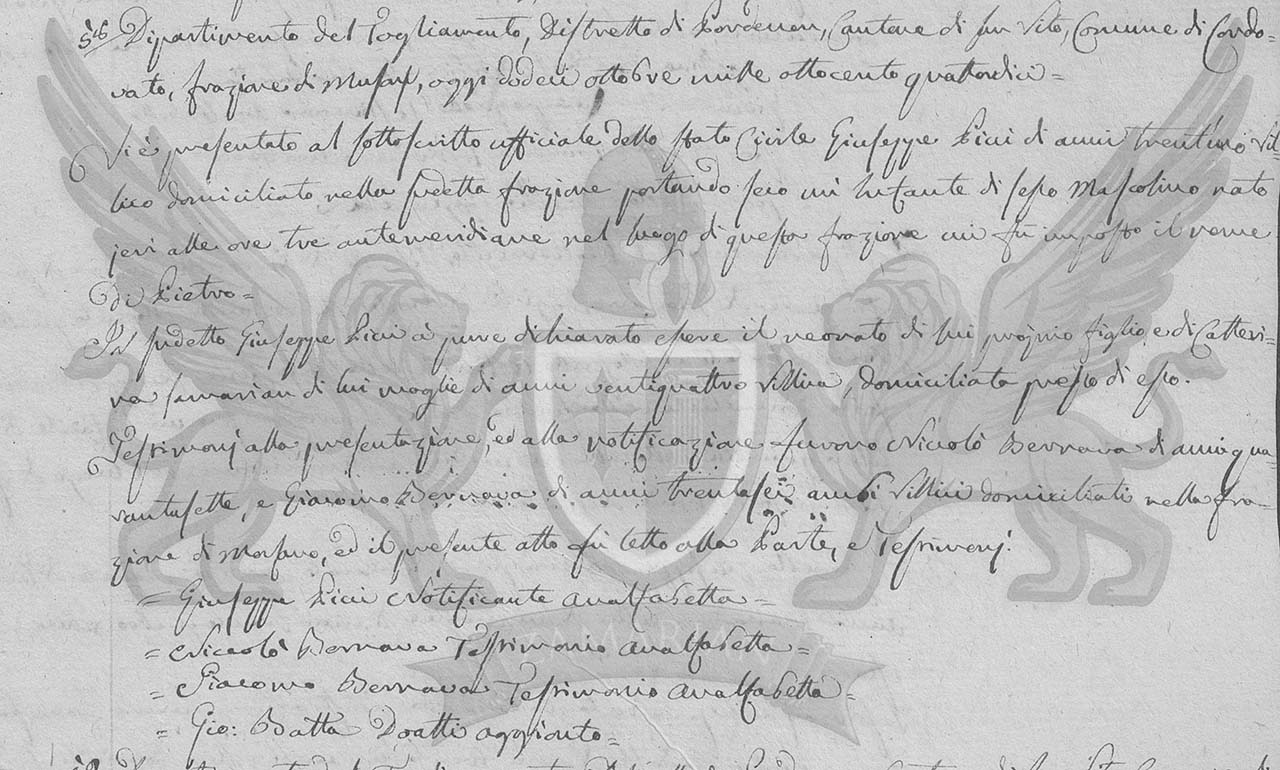 Dipartimento del Tagliamento, Distretto di Pordenon, Cantone di San Vito, Comune di Cordo-
vato, frazione di oggi dodeci ottobre mille ottocento quattordici =
Si è presentato al sottoscritto ufficiale dello stato Civile Giuseppe Pici di anni trentuno Vil-
lico domiciliato nella sudetta frazione portando seco un Infante di sesso Mascolino nato
jeri alle ore tre antemeridiane nel luogo di questa frazione cui fù imposto il nome
di Pietro =
Il sudetto Giuseppe Pici à pure dichiarato essere il neonato di lui proprio figlio, e di Catteri-
na Samarian di lui moglie di anni ventiquattro Villica, domiciliata presso di esso.
Testimonj alla presentazione, ed alla notificazione furono Niccolò Bernava di anni qua-
rantasette, e Giacomo Bernava di anni trentasei ambi Villici domiciliati nella fra-
zione di Morsano, ed il presente atto fù letto alla Parte, e Testimonj.
= Giuseppe Pici Notificante Analfabetta =
= Niccolò Bernava Testimonio Analfabetta =
= Giacomo Bernava Testimonio Analfabetta =
= Gio: Batta Doatti aggionto =